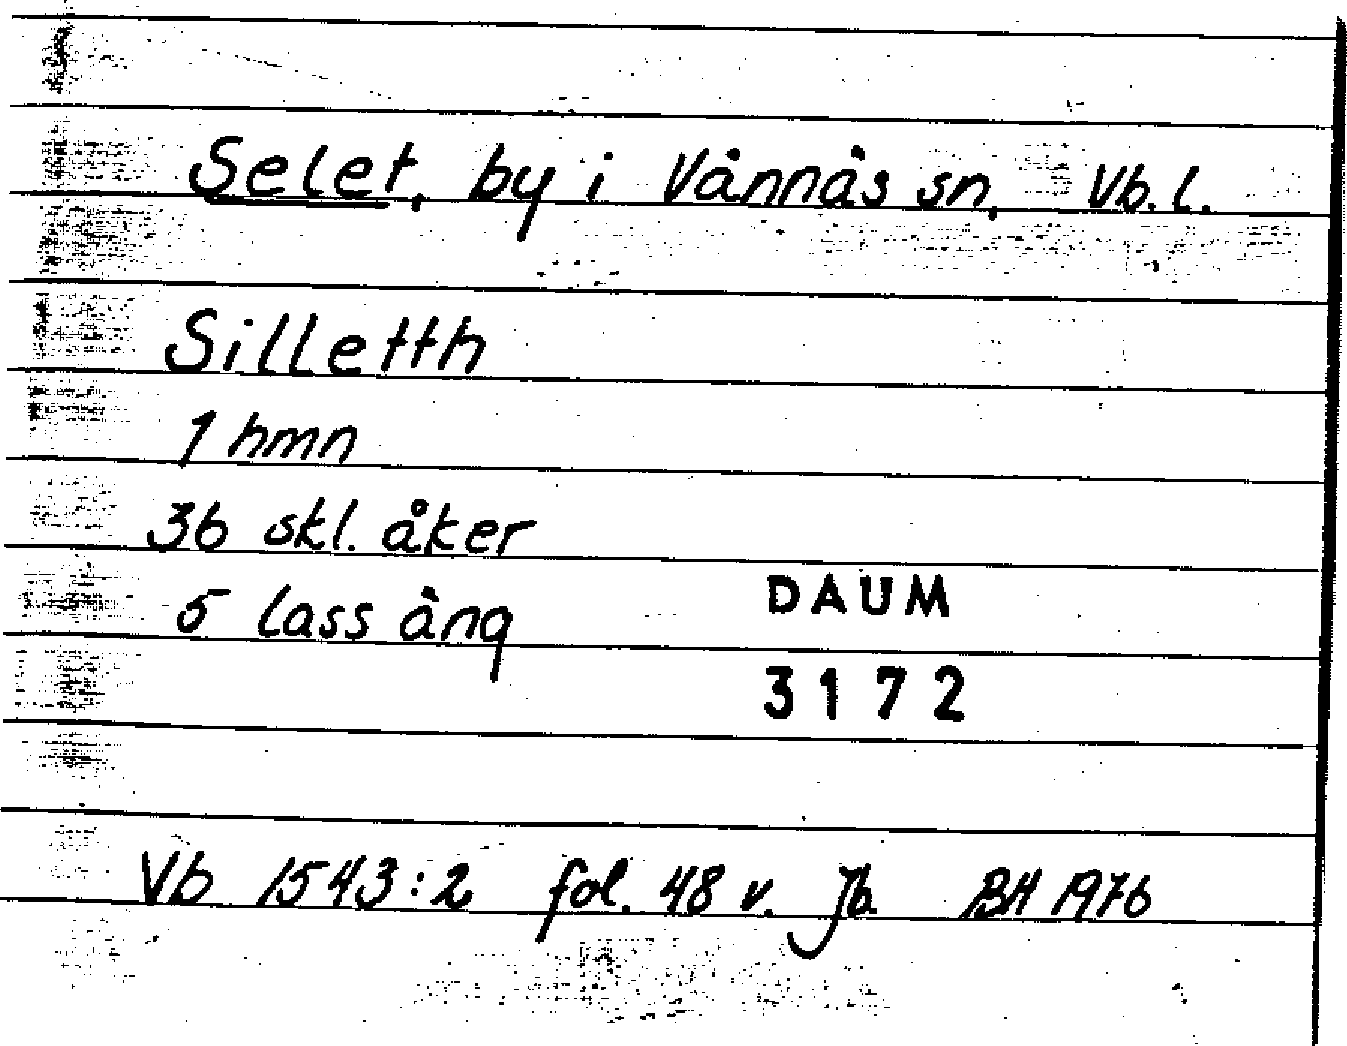 Selet, by i Vännäs sn, Vb. l.
Silletth
1 hmn
36 skl. åker
5 lass äng
DAUM
3172
Vb 1543:2 fol. 48 v. Jb. BH 1976